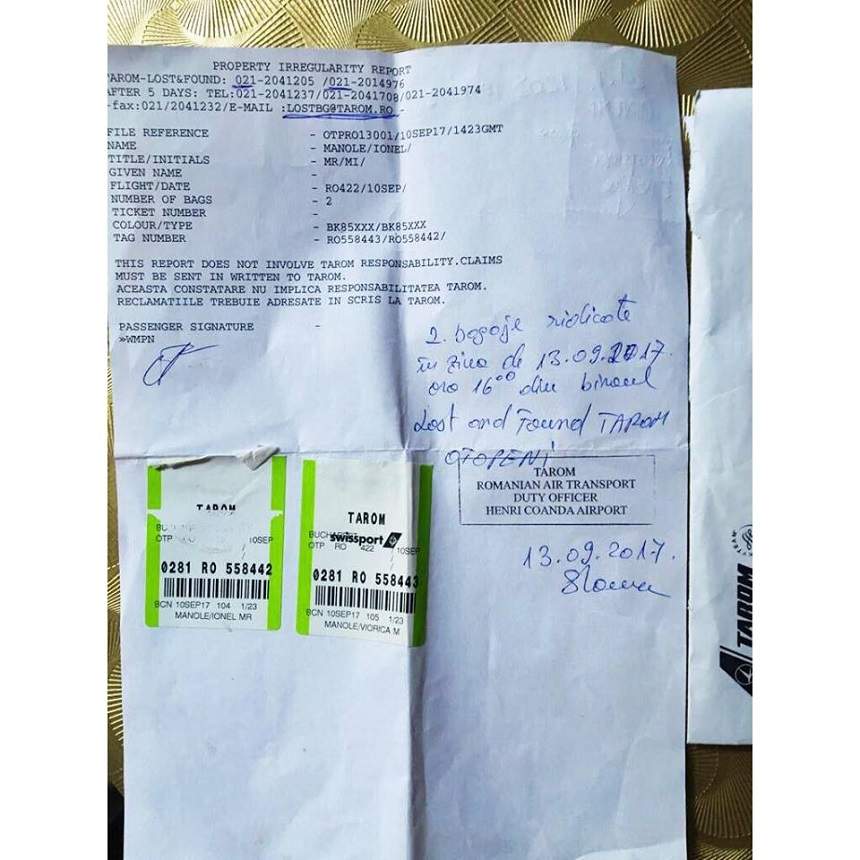 PROPERTY IRREGULARITY REPORT
TAROM-LOST&FOUND: 021-2041205 /021-2014976
AFTER 5 DAYS: TEL:021-2041237/021-2041708/021-2041974
-fax:021/2041232/E-MAIL :LOSTBG@TAROM.RO -
FILE REFERENCE - OTPRO13001/10SEP17/1423GMT
NAME - MANOLE/IONEL/
TITLE/INITIALS - MR/MI/
GIVEN NAME -
FLIGHT/DATE - RO422/10SEP/
NUMBER OF BAGS - 2
TICKET NUMBER -
COLOUR/TYPE - BK85XXX/BK85XXX
TAG NUMBER - RO558443/RO558442/
THIS REPORT DOES NOT INVOLVE TAROM RESPONSABILITY.CLAIMS
MUST BE SENT IN WRITTEN TO TAROM.
ACEASTA CONSTATARE NU IMPLICA RESPONSABILITATEA TAROM.
RECLAMATIILE TREBUIE ADRESATE IN SCRIS LA TAROM.
PASSENGER SIGNATURE -
»WMPN
2. bagaje ridicate
în ziua de 13.09.2017.
ora 16⁰⁰ din biroul
Lost and Found TAROM
OTOPENI
TAROM
ROMANIAN AIR TRANSPORT
DUTY OFFICER
HENRI COANDA AIRPORT
13.09.2017.
TAROM
OTP 10SEP
0281 RO 558442
BCN 10SEP17 104 1/23
MANOLE/IONEL MR
TAROM
swissport
OTP RO 422 10SEP
0281 RO 558443
BCN 10SEP17 105 1/23
MANOLE/VIORICA M
TAROM